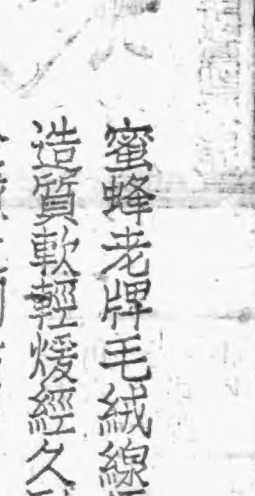 蜜蜂老牌毛絨線
造質軟輕煖經久